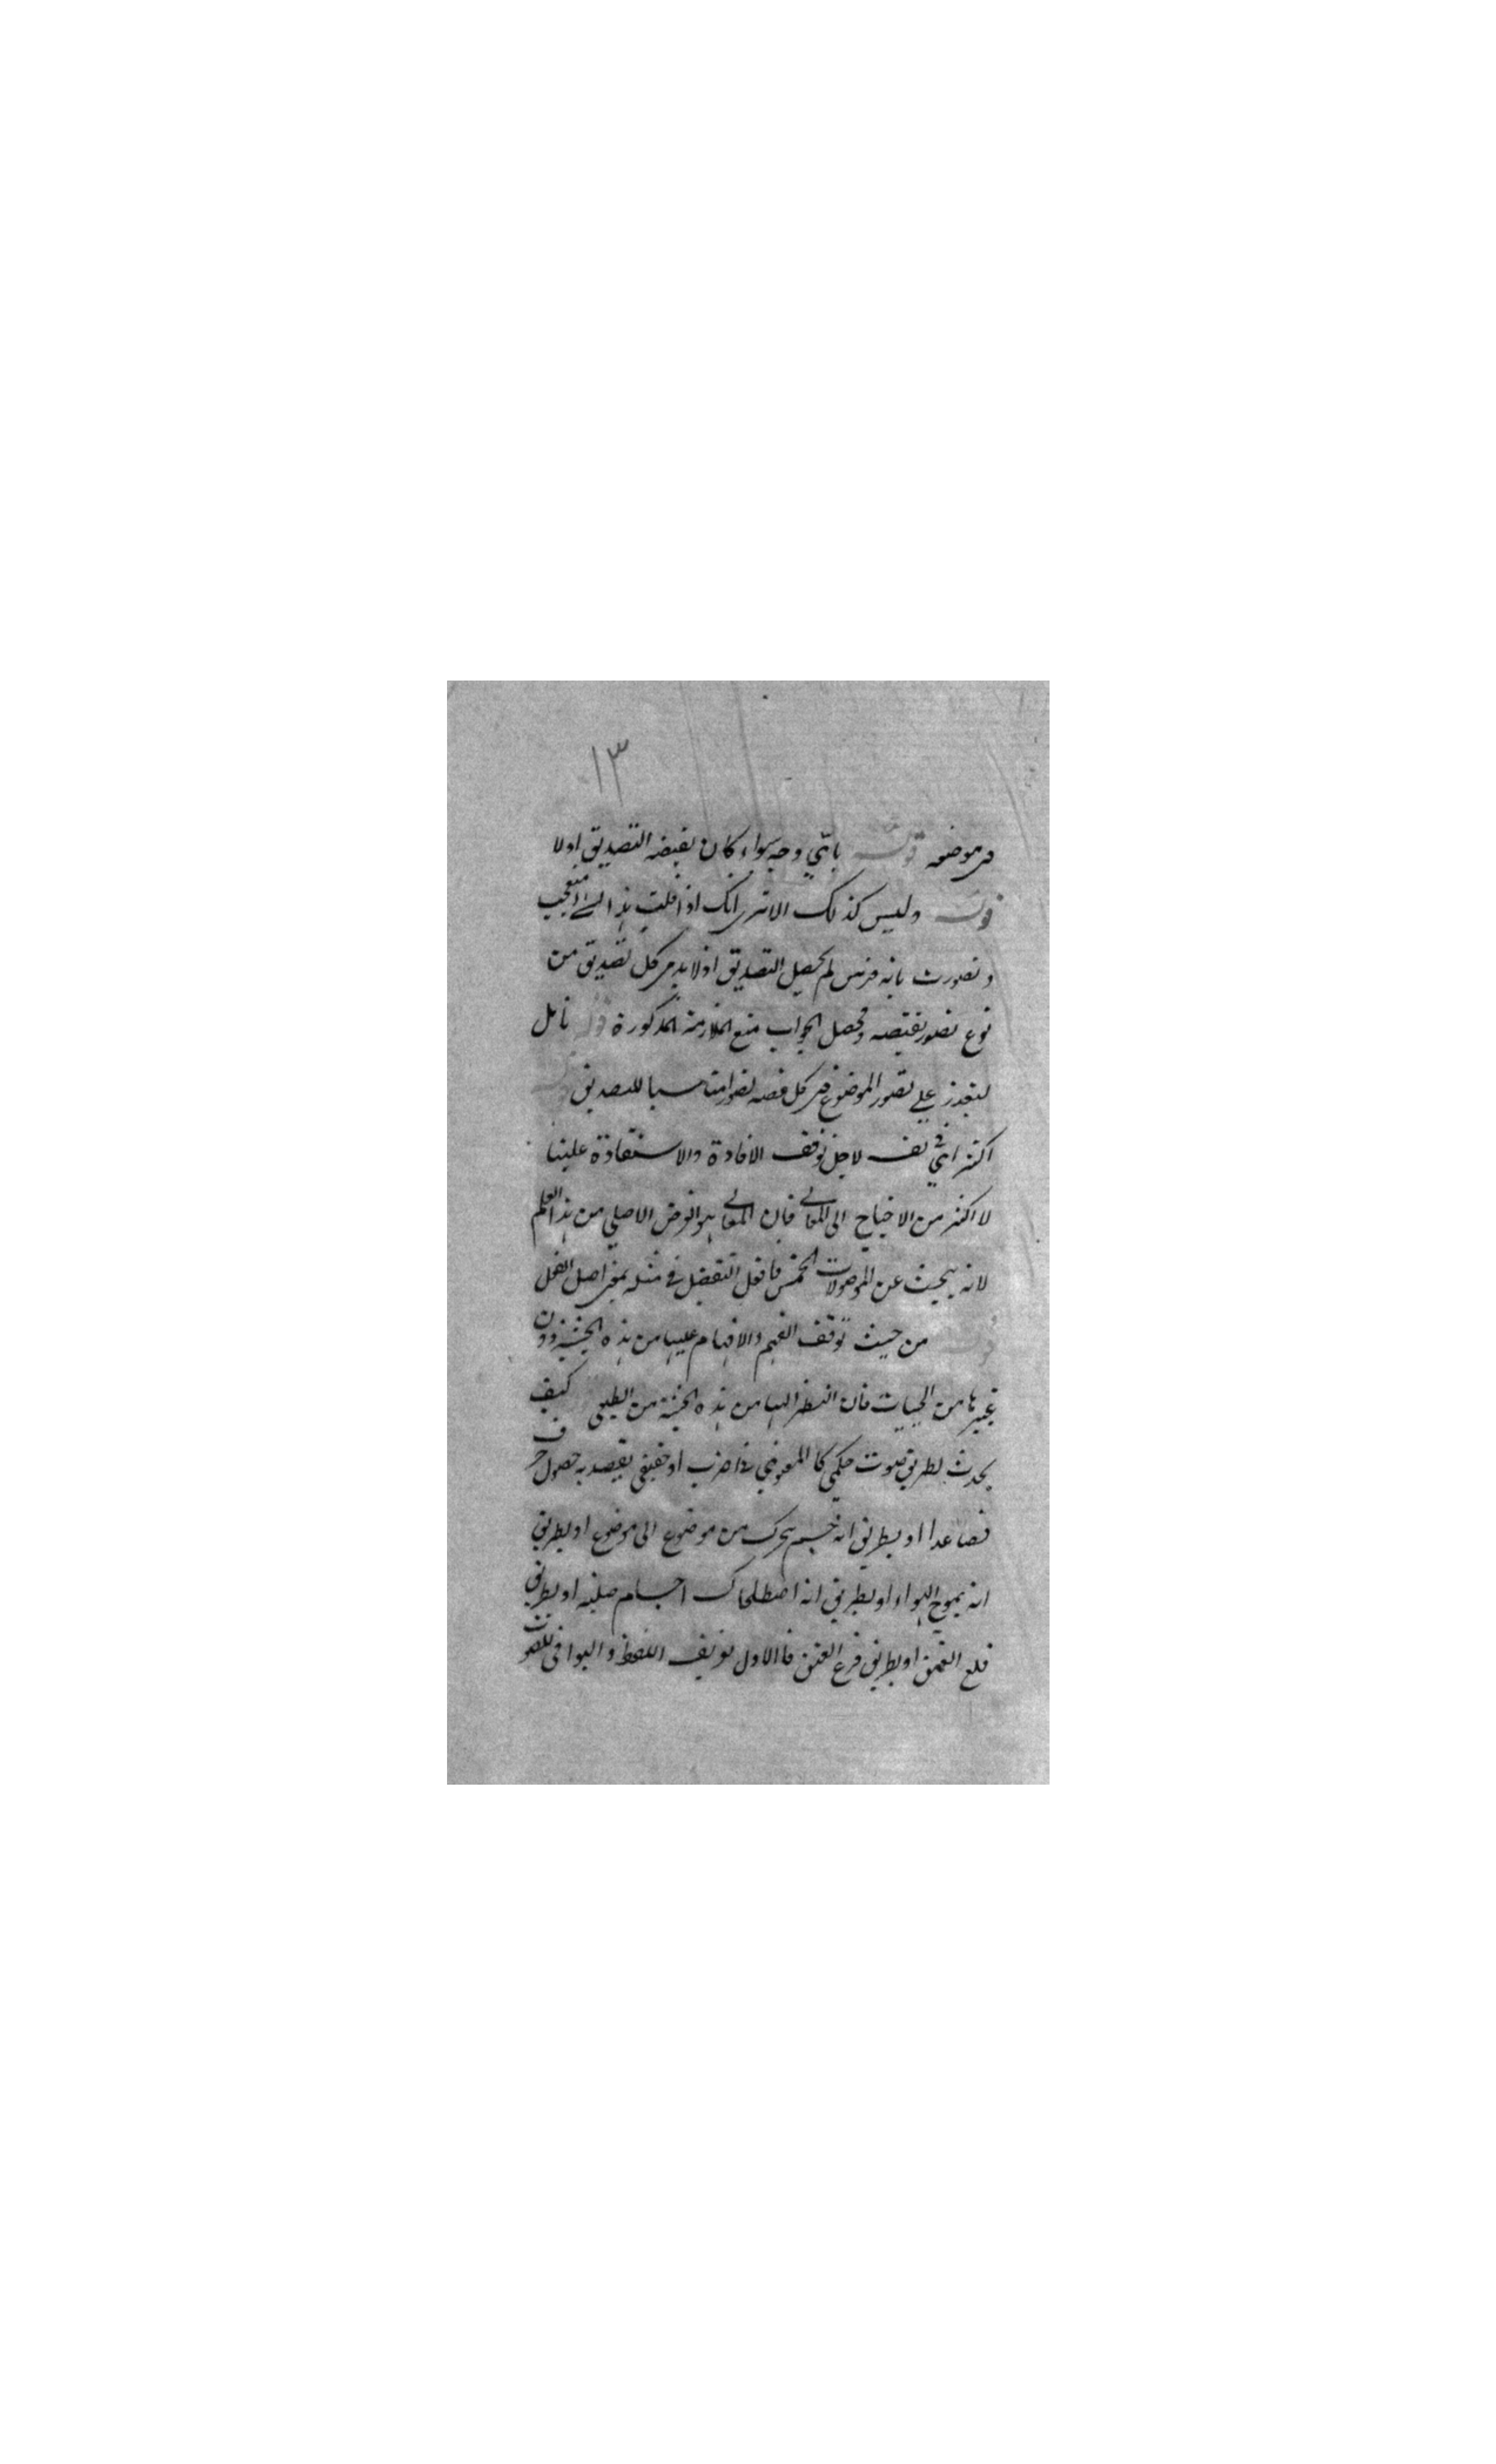 ١٣
فى موضعه قوله باي وجه سواء كان نقيضه التصديق اولا
قوله وليس كذلك الا ترى انك اذا قلت هذا الشئ متعجب
وتصورت بانه فرس لم يحصل التصديق اذ لا بد فى كل تصديق من
نوع تصور نقيضه ومحصل الجواب منع الملازمة المذكورة قوله تامل
على تصور الموضوع فى كل قصه تصورا مناسبا للتصديق قوله
اكثر لاجل توقف الافادة والاستفادة علينا
لا اكثر من الاحتياج الى المعانى فان المعانى هو الغرض الاصلى من هذا العلم
لانه يبحث عن الموصولات الخمس فافعل التفضيل فى مثله بمعنى اصل الفعل
قوله من حيث توقف الفهم والافهام عليها من هذه الحيثية دون
غيرها من الحيثيات فان النظر اليها من هذه الحيثية من كيف
يحدث بطريق صوت حكمى كا المعنوى فى اضرب او حقيقى يقصد به حصول حرف
فصاعدا او بطريق انه جسم يتحرك من موضوع الى موضوع او بطريق
انه يموج الهواء او بطريق انه اصطكاك اجسام صلبه او بطريق
قلع او بطريق قرع فا الاول تعريف اللفظ و البواقى للصوت